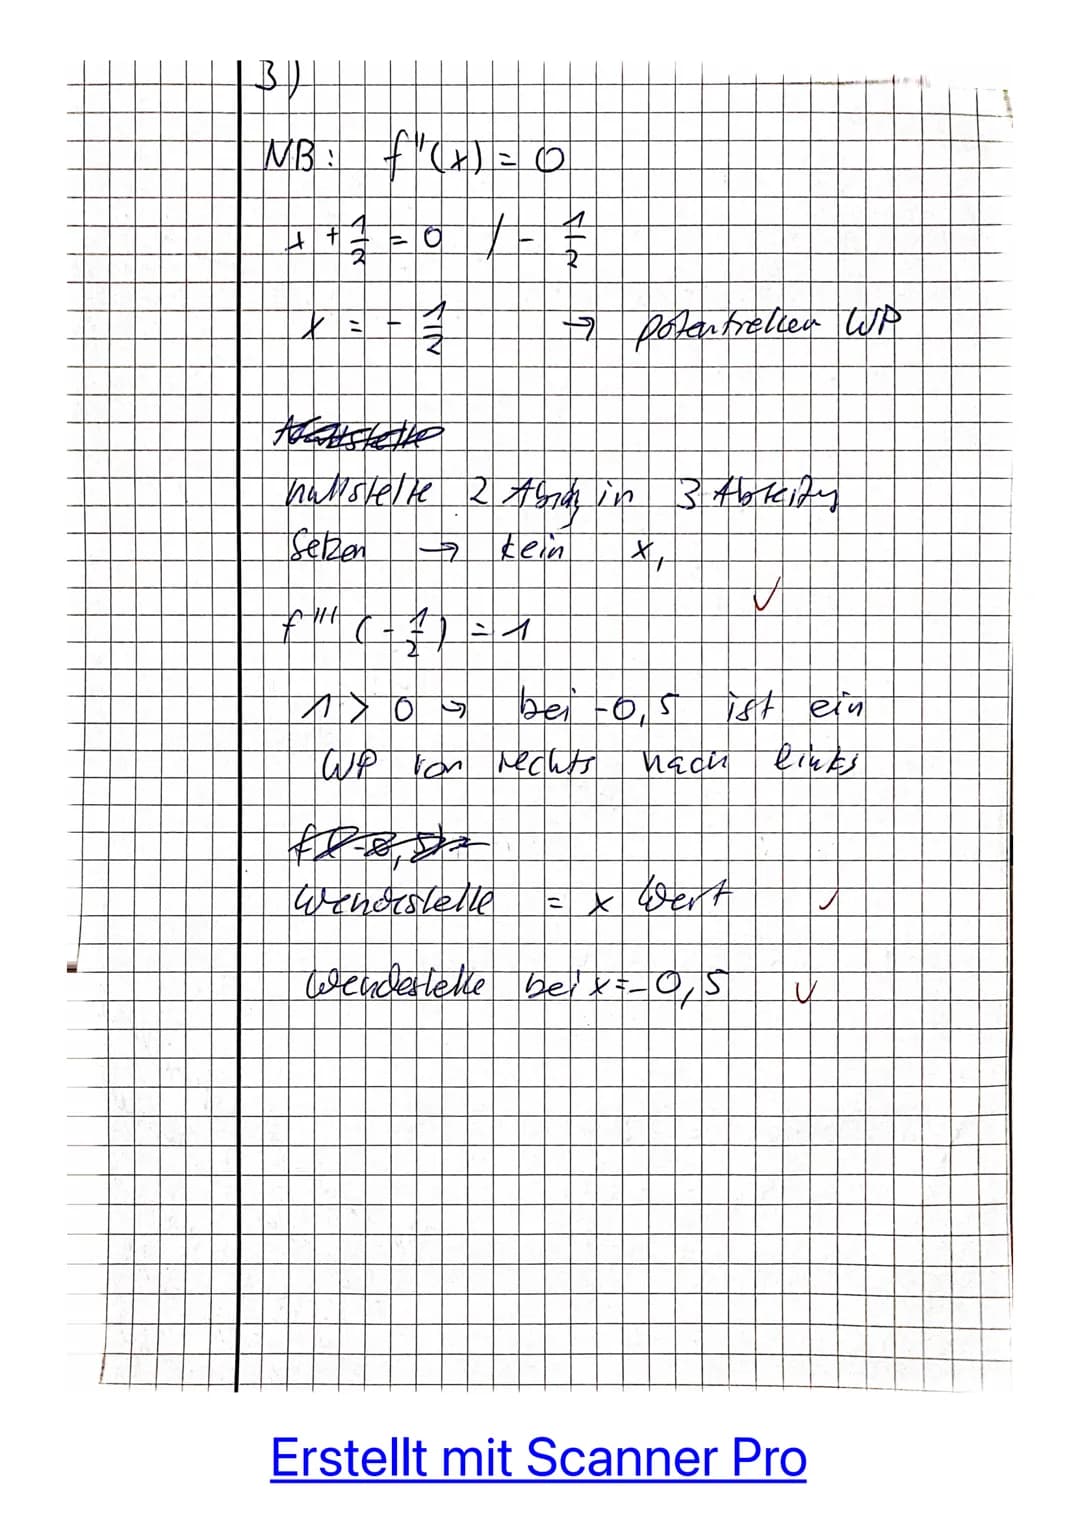 3)
NB: f''(x) = 0
x + 1/2 = 0 / - 1/2
x = - 1/2 → potentiellen WP
nullstelle 2 in 3 Ableitung
setzen → kein x,
f''' (- 1/2) = 1
1 > 0 → bei -0,5 ist ein
WP von rechts nach links
Wendestelle = x Wert
Wendestelle bei x = -0,5
Erstellt mit Scanner Pro